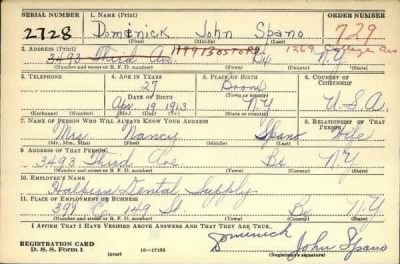 SERIAL NUMBER 1. NAME (Print) ORDER NUMBER
2728 Dominick John Spano 729
(First) (Middle) (Last)
2. ADDRESS (Print) 1269 College Ave
3493 Third Ave. Bx N.Y
(Number and street or R. F. D. number) (Town) (County) (State)
3. TELEPHONE 4. AGE IN YEARS 5. PLACE OF BIRTH 6. COUNTRY OF CITIZENSHIP
27 Bronx
DATE OF BIRTH
Apr 19 1913 N.Y U.S.A.
(Exchange) (No.) (Mo.) (Day) (Yr.) (State or country)
7. NAME OF PERSON WHO WILL ALWAYS KNOW YOUR ADDRESS 8. RELATIONSHIP OF THAT PERSON
Mrs. Nancy Spano Wife
(Mr., Mrs., Miss) (First) (Middle) (Last)
9. ADDRESS OF THAT PERSON
3493 Third Ave Bx N.Y
(Number and street or R. F. D. number) (Town) (County) (State)
10. EMPLOYER'S NAME
Halpern Dental Supply
11. PLACE OF EMPLOYMENT OR BUSINESS
399 E. 149 St. Bx N.Y
(Number and street or R. F. D. number) (Town) (County) (State)
I AFFIRM THAT I HAVE VERIFIED ABOVE ANSWERS AND THAT THEY ARE TRUE.
Dominick John Spano
REGISTRATION CARD
D. S. S. Form 1 (over) 16—17105 (Registrant's signature)